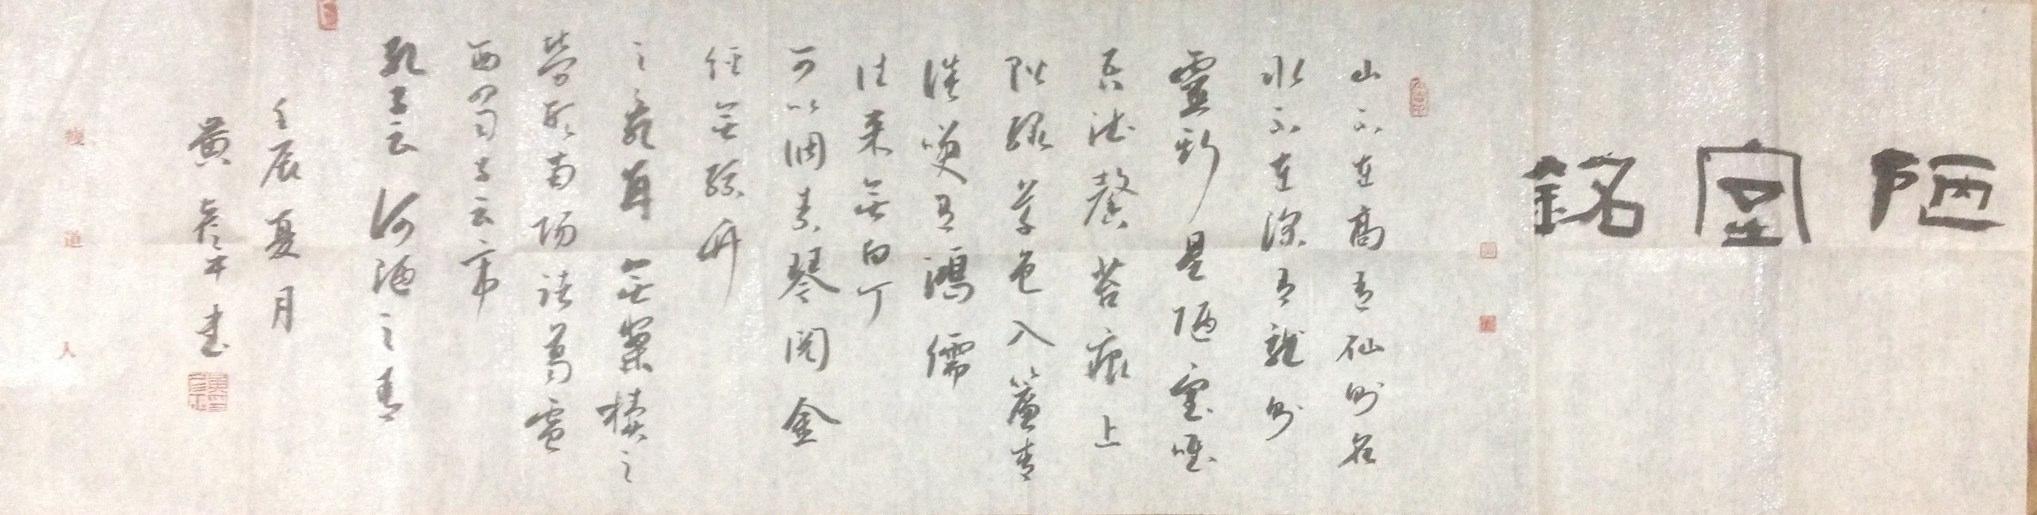 陋室銘
山不在高有仙則名
水不在深有龍則
靈斯是陋室唯
吾德馨苔痕上
階綠草色入簾青
談笑有鴻儒
往來無白丁
可以調素琴閱金
經無絲竹
之亂耳無案牘之
勞形南陽諸葛廬
西蜀子云亭
孔子云何陋之有
壬辰夏月
黃 書
道人